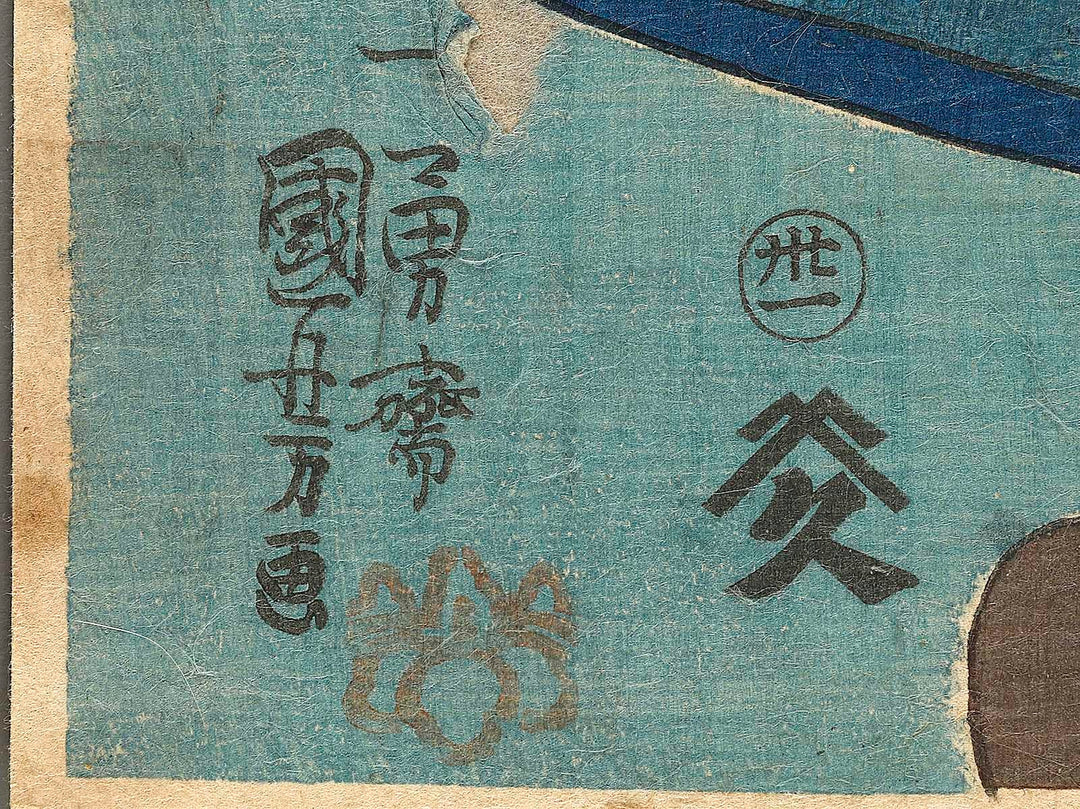 卅一
久
一勇齋
國芳画